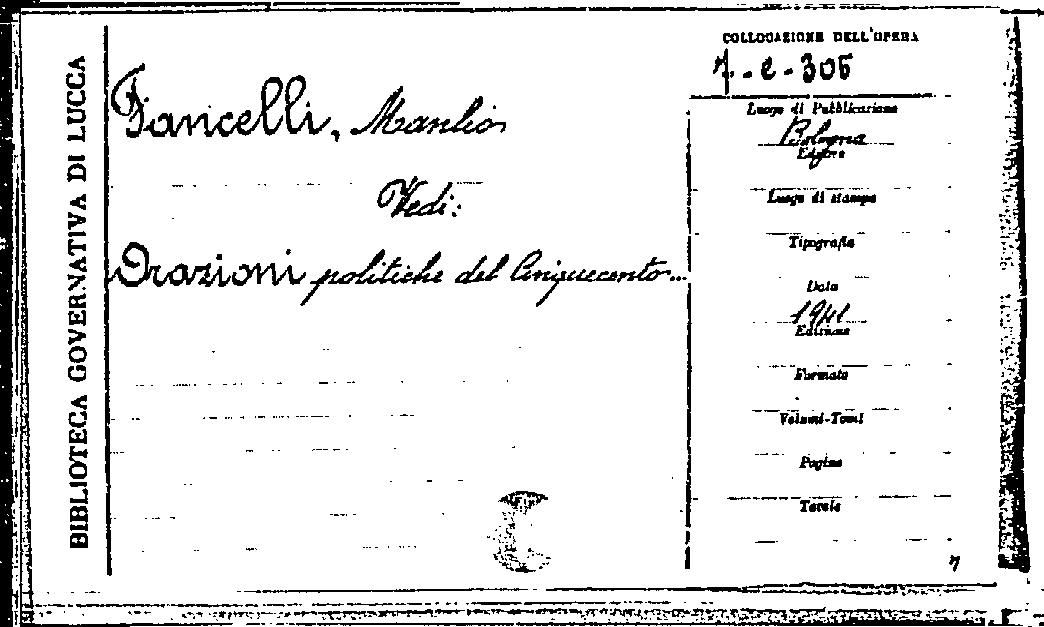 BIBLIOTECA GOVERNATIVA DI LUCCA
Fancelli, Manlio
Vedi:
Orazioni politiche del Cinquecento...
COLLOCAZIONE DELL'OPERA
7.-e-305
Luogo di Pubblicazione
Bologna
Editore
Luogo di stampa
Tipografia
Data
1941
Edizione
Formato
Volumi-Tomi
Pagine
Tavole
7